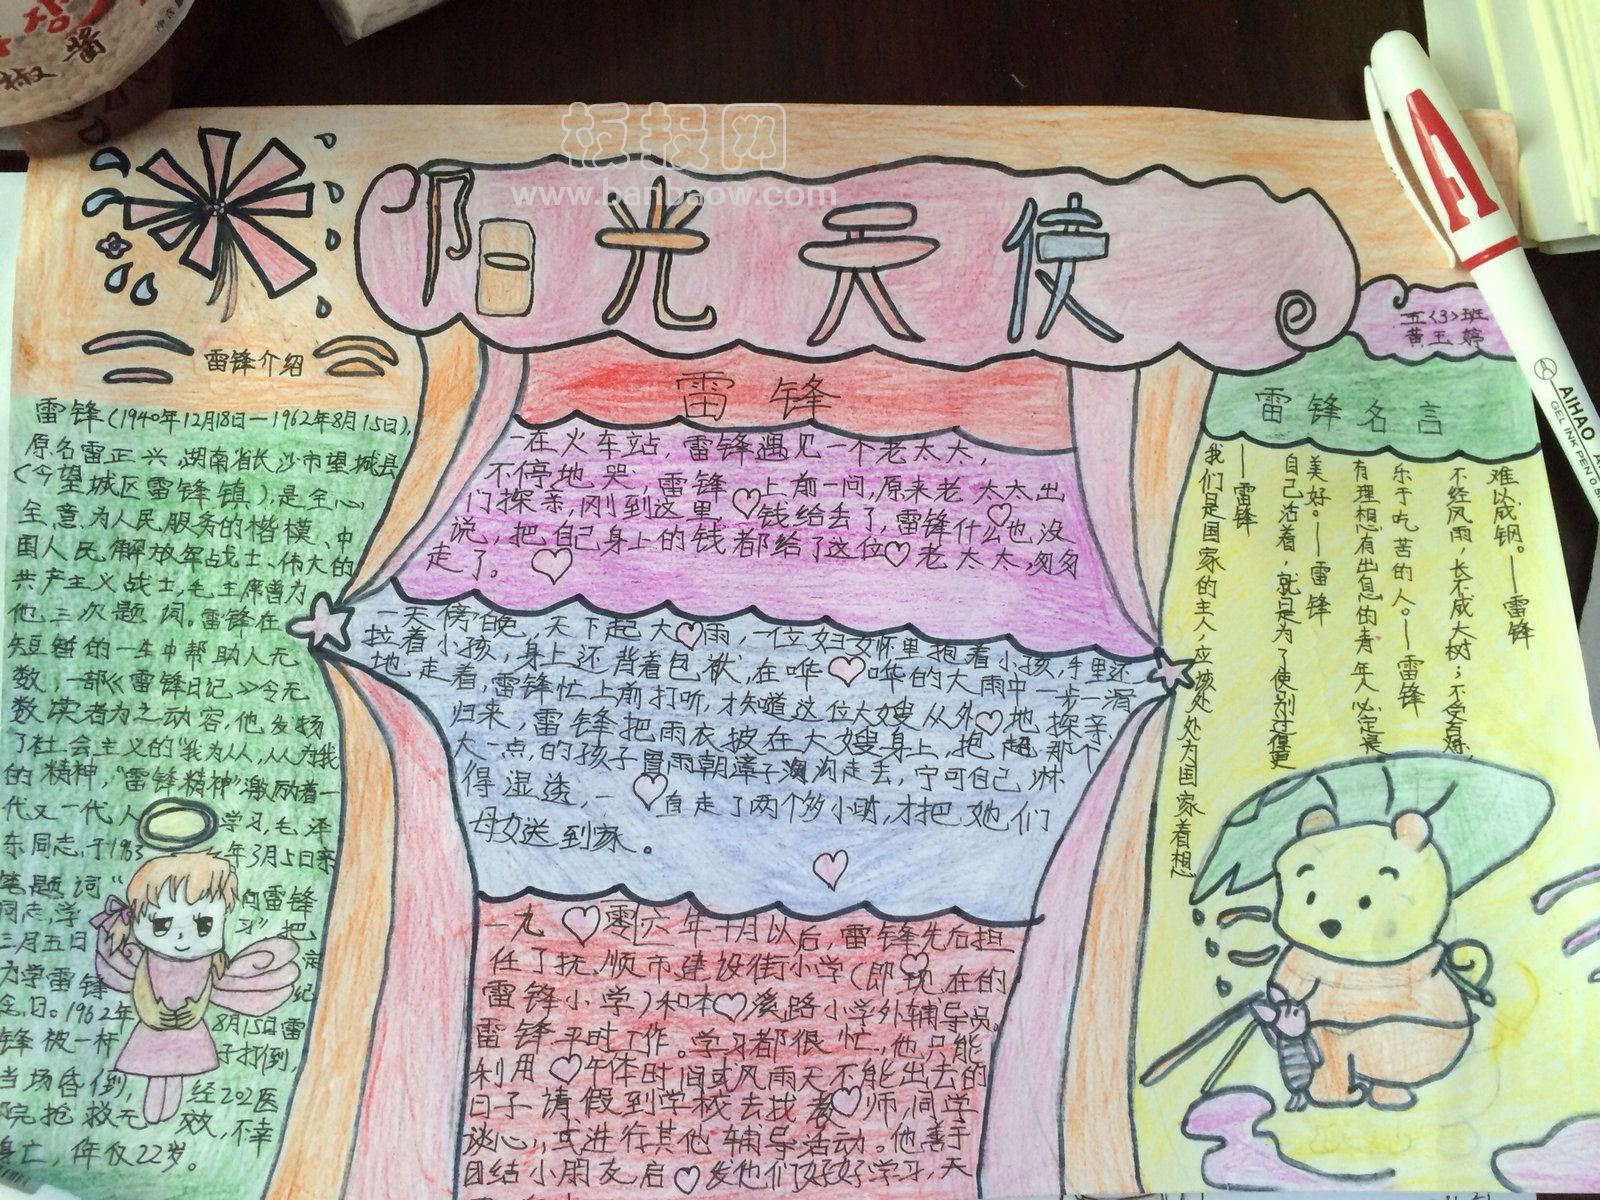 椒酱
板报网
www.banbaow.com
阳光天使
五<3>班
黄玉婷
A
AIHAO
GEL INK PEN
雷锋介绍
雷锋(1940年12月18日—1962年8月15日),
原名雷正兴,湖南省长沙市望城县
(今望城区雷锋镇),是全心
全意为人民服务的楷模、中
国人民解放军战士、伟大的
共产主义战士,毛主席曾为
他三次题词。雷锋在
短暂的一生中帮助人无
数,一部《雷锋日记》令无
数读者为之动容,他发扬
了社会主义的“我为人人,人人为我”
的精神,“雷锋精神”激励着一
代又一代人学习,毛泽
东同志,于1963年3月5日亲
笔题词“向雷锋
同志,学习”把
三月五日定
为学雷锋纪
念日。1962年8月15日雷
锋被一杆子打倒,
当场昏倒,经202医
院抢救无效,不幸
身亡,年仅22岁。
雷锋
一在火车站,雷锋遇见一个老太太,
不停地哭,雷锋上前一问,原来老太太出
门探亲,刚到这里,钱给丢了,雷锋什么也没
说,把自己身上的钱都给了这位老太太,匆匆
走了。
一天傍晚,天下起大雨,一位妇女怀里抱着小孩,手里还
拉着小孩,身上还背着包袱,在哗哗的大雨中一步一滑
地走着,雷锋忙上前打听,才知道这位大嫂从外地探亲
归来,雷锋把雨衣披在大嫂身上,抱起那个
大一点,的孩子冒雨朝樟子沟走去,宁可自己淋
得湿透,一直走了两个多小时,才把她们
母女送到家。
一九零六年十月以后,雷锋先后担
任了抚顺市建设街小学(即现在的
雷锋小学)和本溪路小学外辅导员。
雷锋平时工作。学习都很忙,他只能
利用午休时间或风雨天不能出去的
日子请假到学校去找老师,同学
谈心,或进行其他辅导活动。他善于
团结小朋友,启发他们好好学习,天
雷锋名言
难以成钢。——雷锋
不经风雨,长不成大树;不受百炼,
乐于吃苦的人。——雷锋
有理想有出息的青年人必定是
美好。——雷锋
自己活着,就是为了使别人过得更
——雷锋
我们是国家的主人,应该处处为国家着想